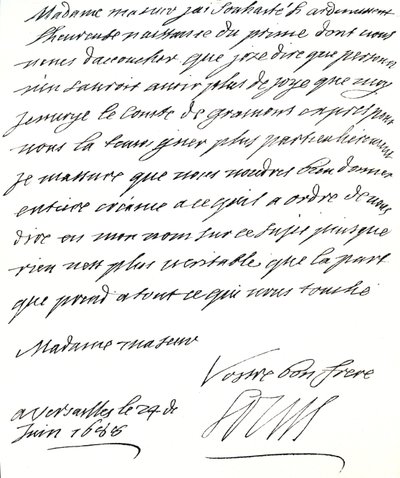 Madame maseur jai souhaité si ardemment
lheureuse naissance du prince dont vous
venes daccoucher que joze dire que personne
nen sauroit avoir plus de joye que moy
Jenvoye le Comte de gramont expres pour
vous la temoigner plus particulierement
Je massure que vous voudres bien donner
entiere creance a ce quil a ordre de vous
dire en mon nom sur ce sujet puisque
rien nest plus veritable que la part
que prend a tout ce qui vous touche
Madame maseur
Vostre bon frere
Louis
a versailles le 24 de
Juin 1688